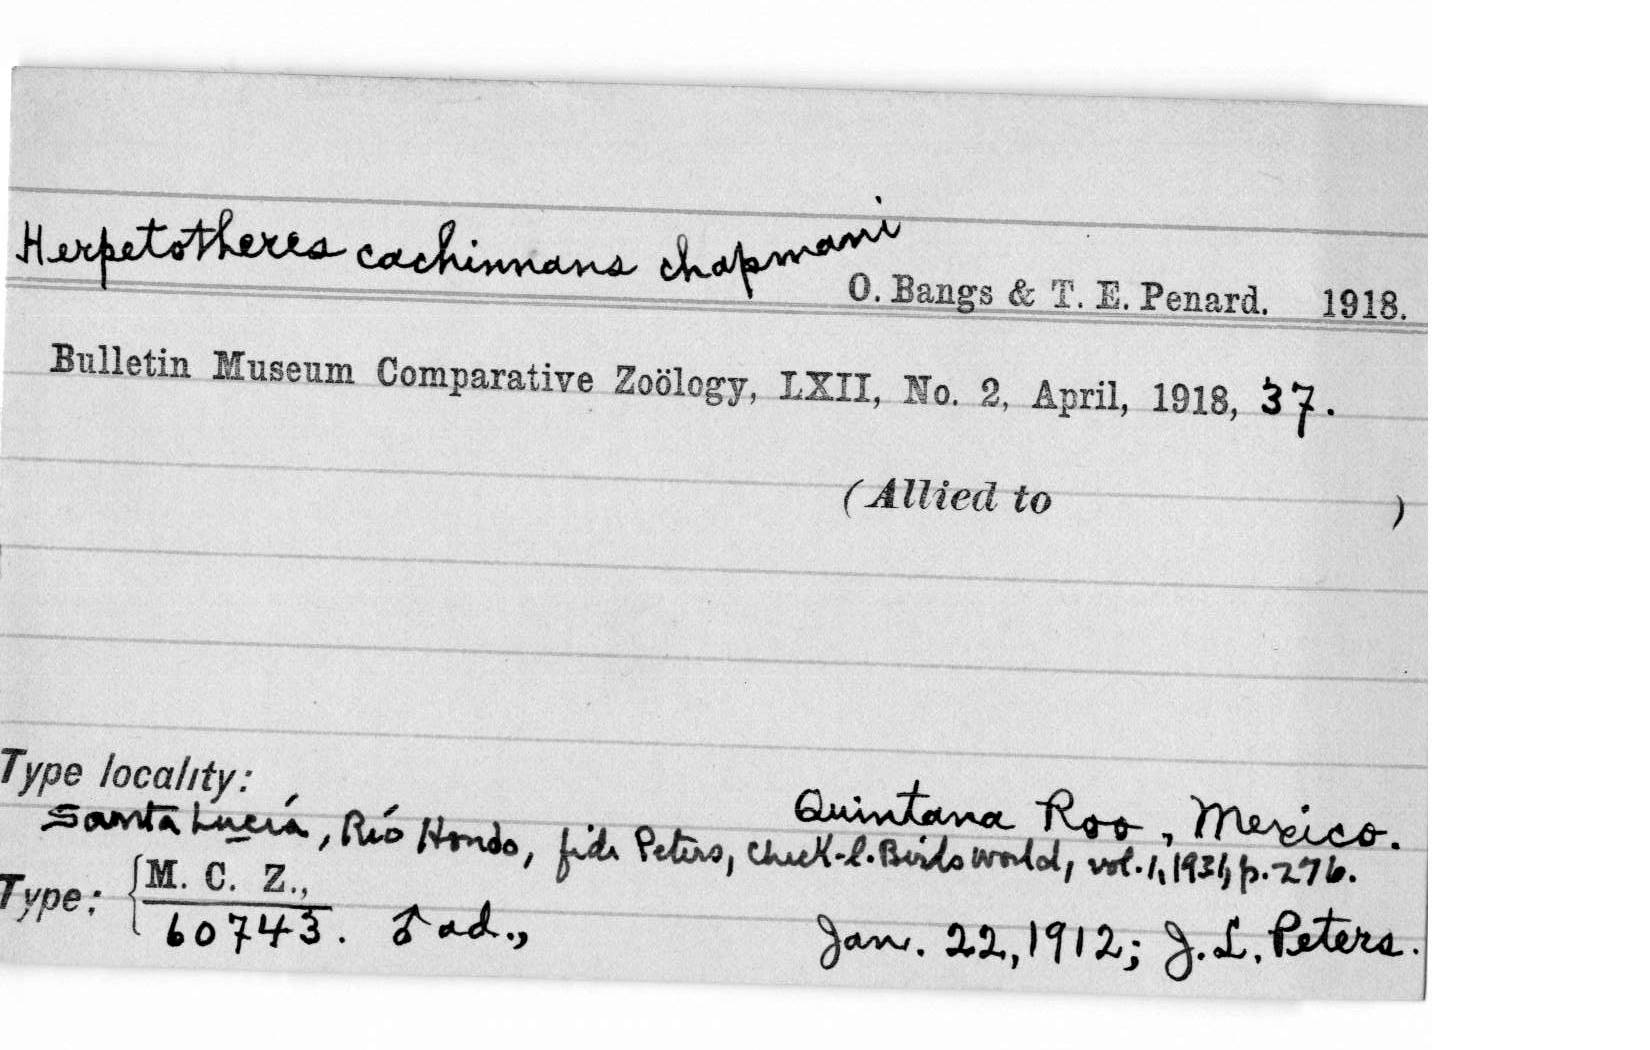 Herpetotheres cachinnans chapmani
O. Bangs & T. E. Penard. 1918.
Bulletin Museum Comparative Zoölogy, LXII, No. 2, April, 1918, 37.
(Allied to )
Type locality:
Quintana Roo, Mexico.
Santa Lucía, Río Hondo, fide Peters, Check-l. Birds World, vol. 1, 1931, p. 276.
Type: { M. C. Z.,
60743. ♂ ad., Jan. 22, 1912; J. L. Peters.